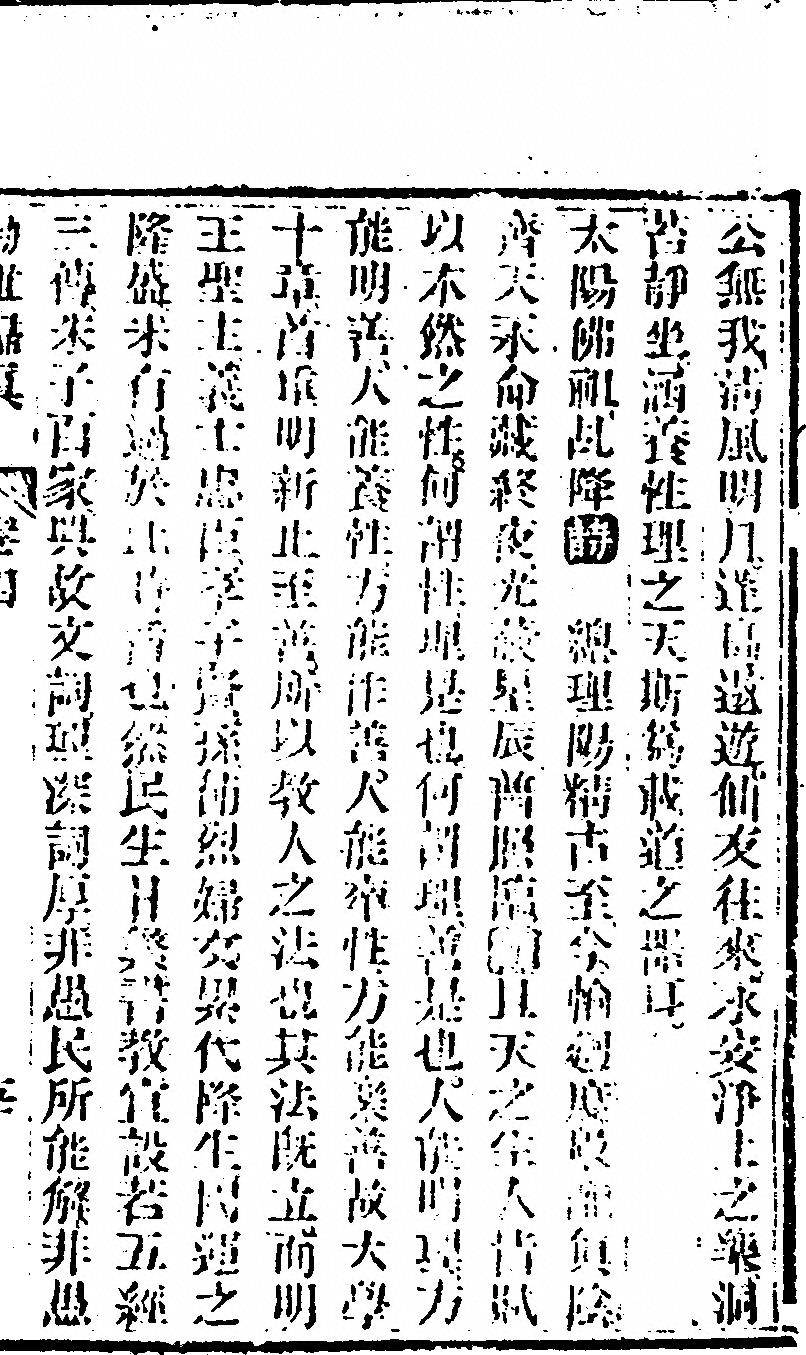 公無我清風明月蓬島遠遊仙友往來永安淨土之樂洞
苦靜坐涵養性理之天斯為載道之器耳
太陽佛祖乩降 詩 總理陽精古至今 輪迴度 負陰
齊天永命藏終夜光 星辰普照臨 且天之生人皆賦
以本然之性何謂性理是也何謂理善是也人能明理方
能明善人能養性方能作善人能率性方能 善故大學
十章首章明新止至善所以教人之法也其法既立而明
王聖主義士忠臣孝子賢孫節烈婦女累代降生國運之
隆盛未有過於 也然民生日 教宜設若五經
三傳朱子百家典故文詞理深詞厚非愚民所能解非愚